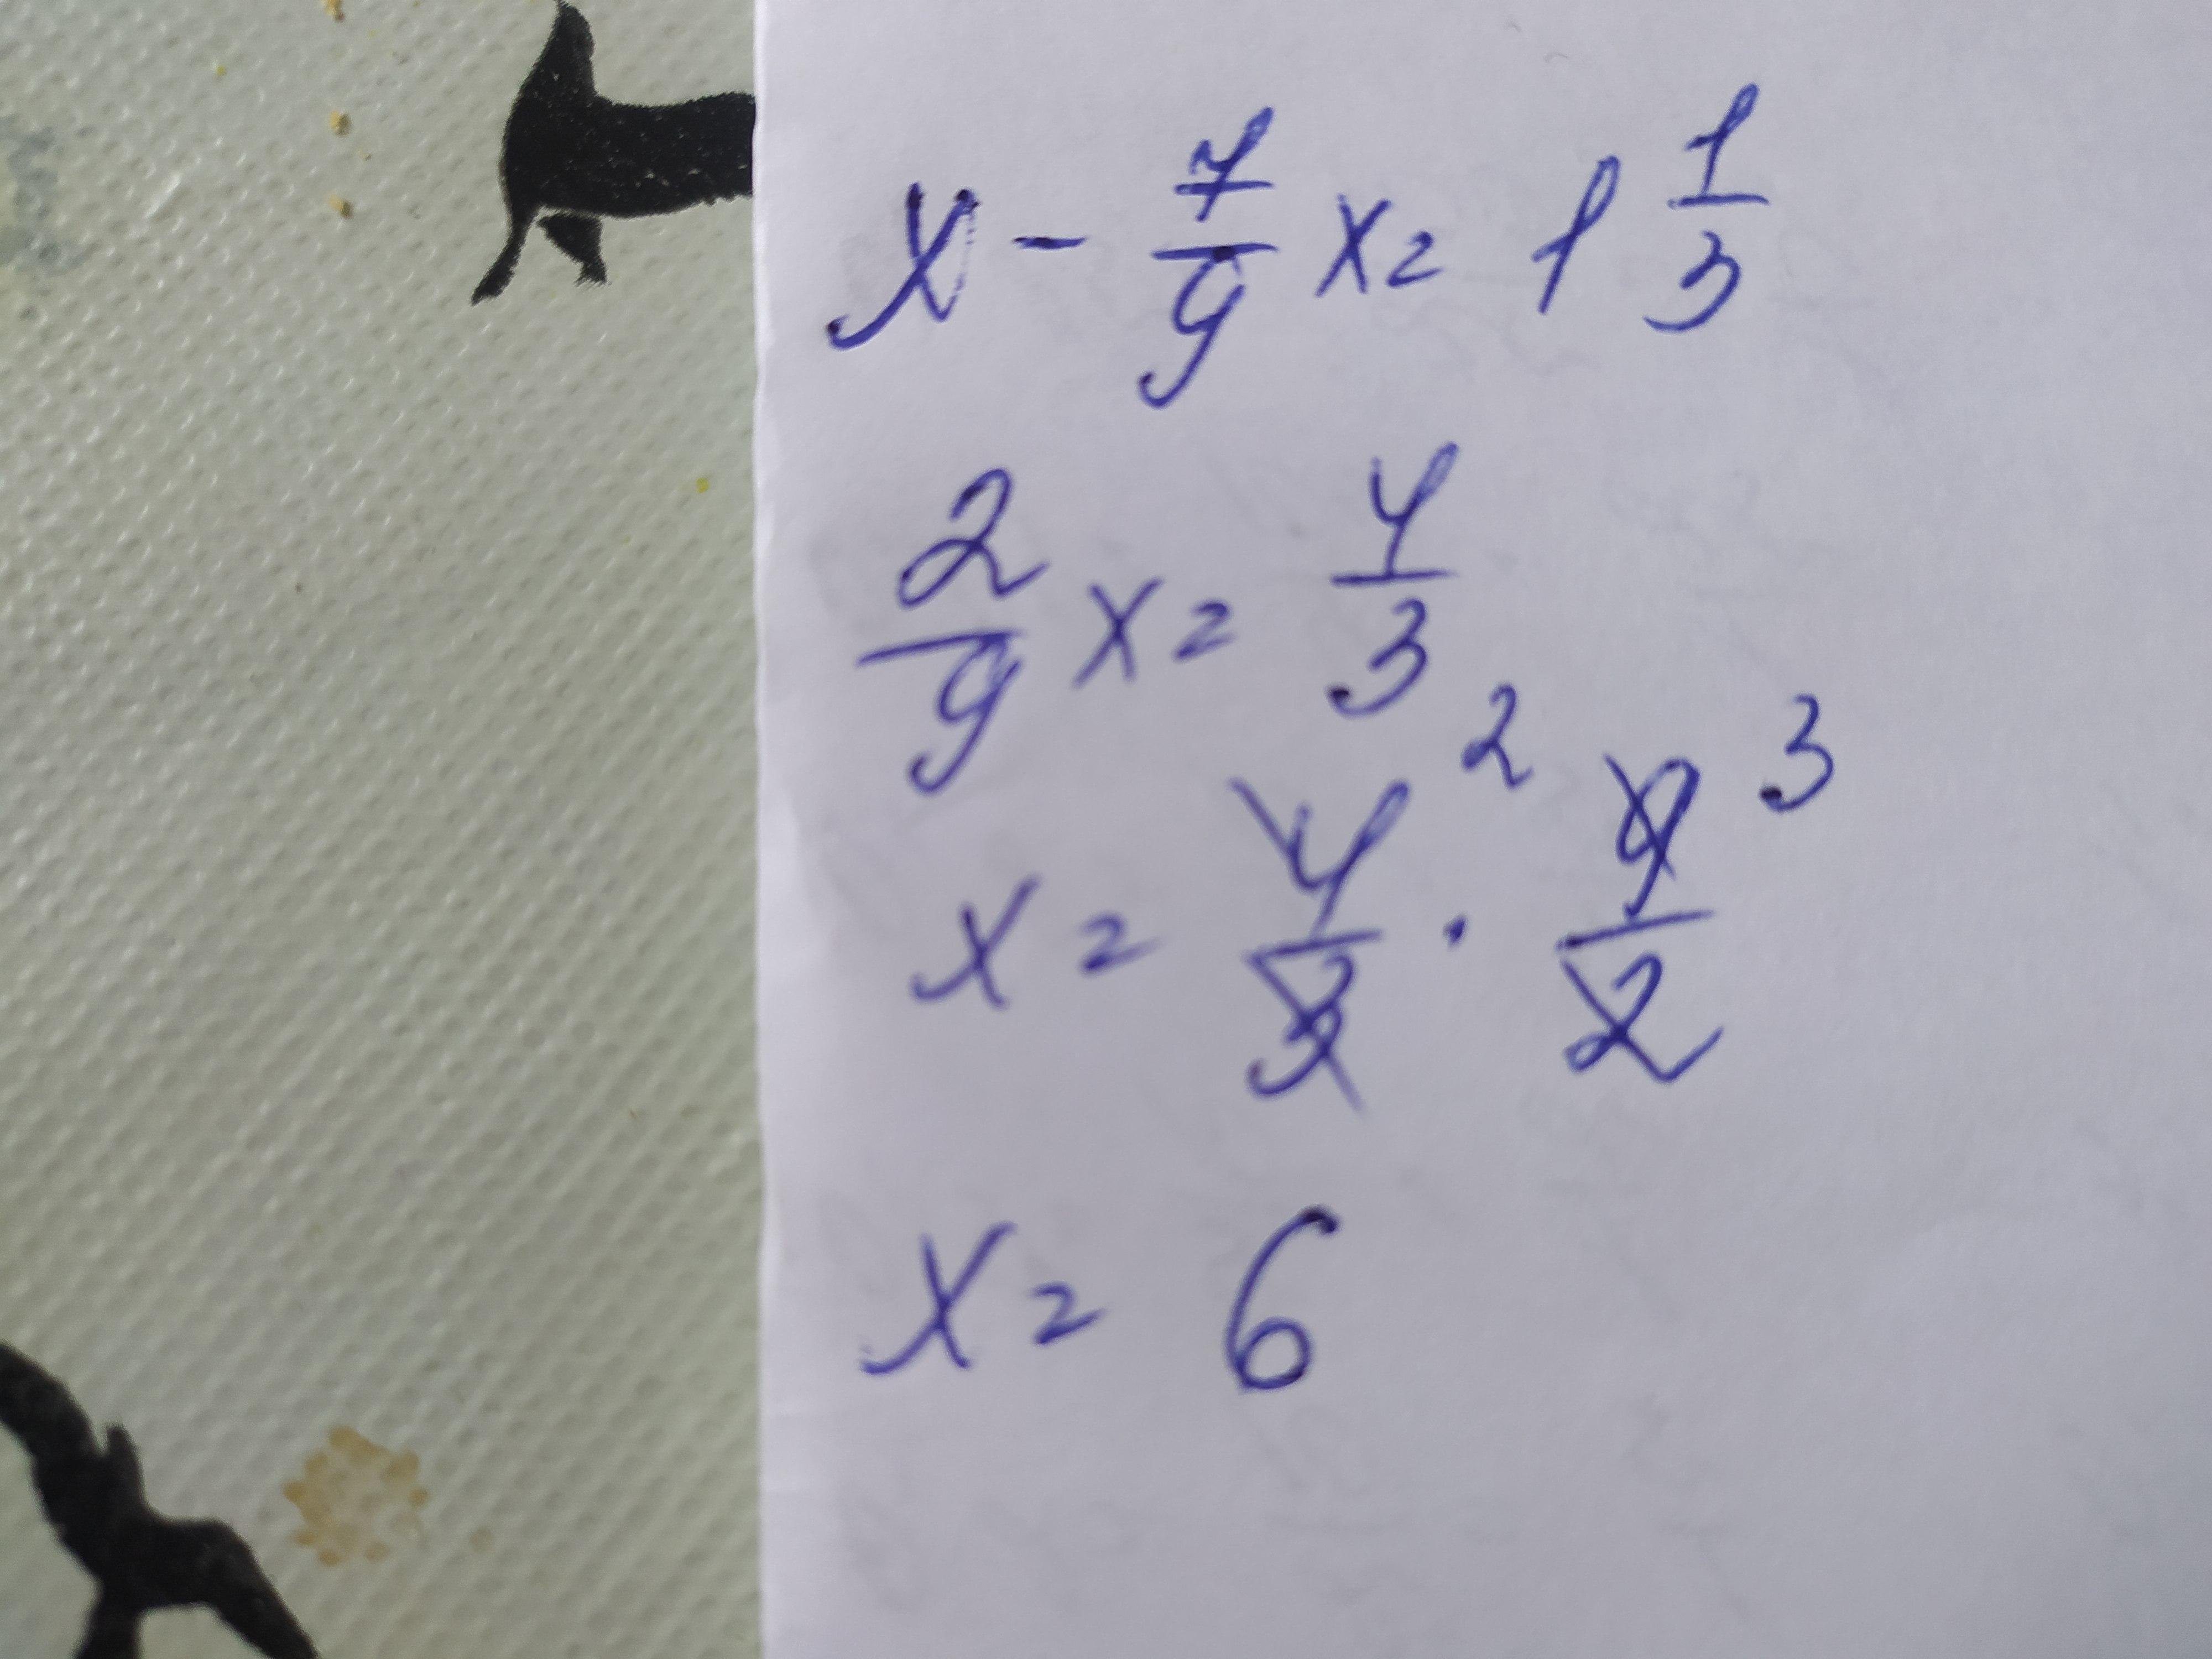 x - 7/9 x = 1 1/3
2/9 x = 4/3
x = 4/3 2 · 9/2 3
x = 6